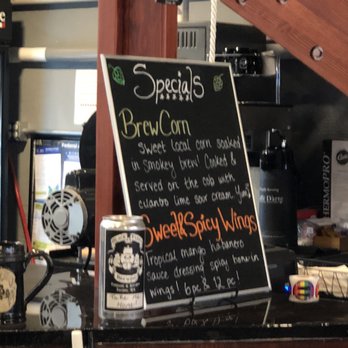 Specials
BrewCorn
Sweet local corn soaked
in smokey brew! Cooked &
served on the cob with
cilantro lime sour cream. Yum!
Sweet&Spicy Wings
Tropical mango habanero
sauce dressing spicy
wings! 6pc & 12 pc!
THERMOPRO